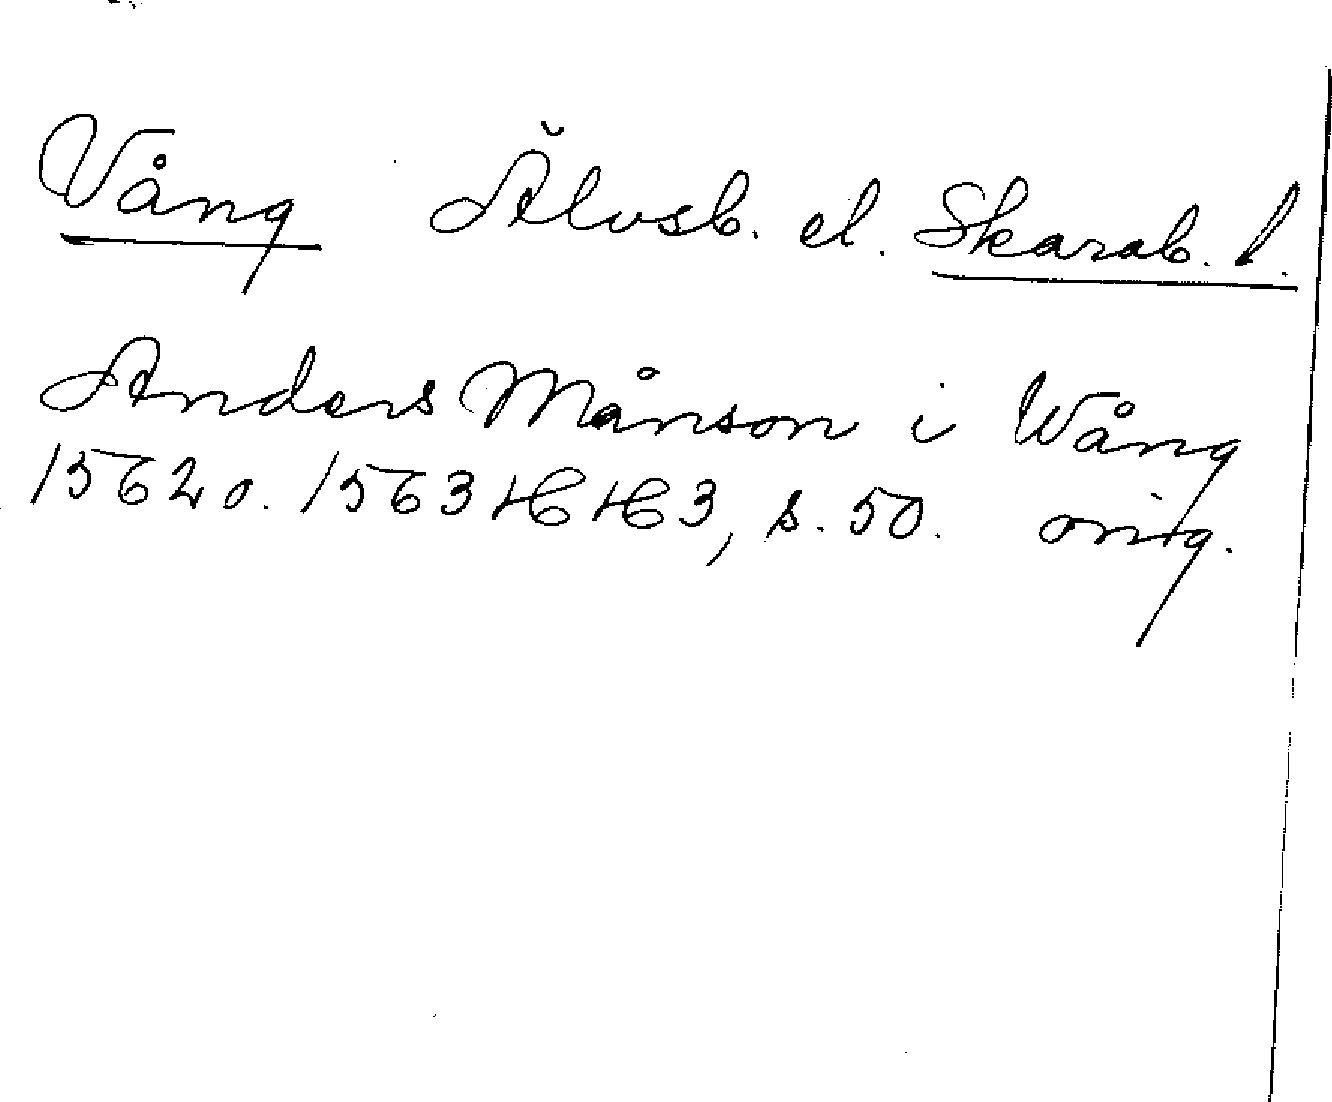 Vång Älvsb. el. Skarab. l.
Anders Månson i Wång
1562 o. 1563 HH 3, s. 50. orig.